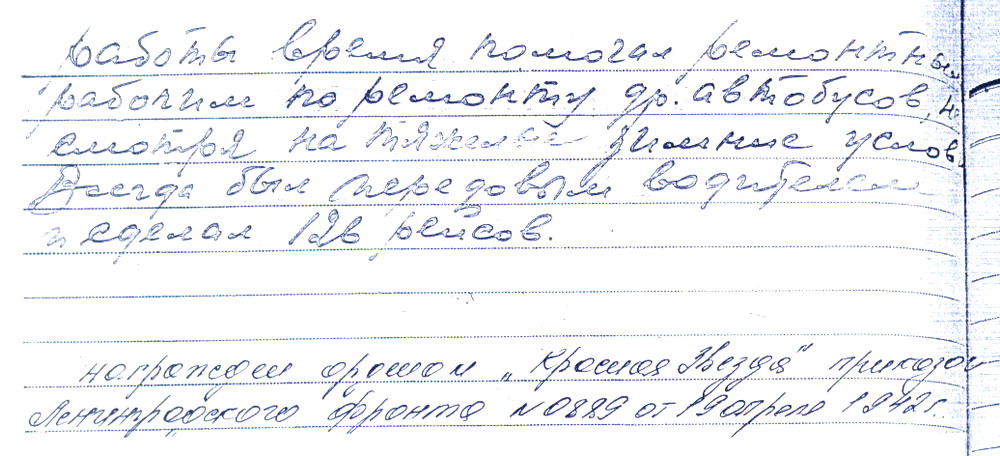 работы время помогал ремонтным
рабочим по ремонту др. автобусов, не
смотря на тяжелые зимние услов.
Всегда был передовым водителем
и сделал 126 рейсов.
награжден орденом „Красная Звезда" приказом
Ленинградского фронта №0889 от 19 апреля 1942г.